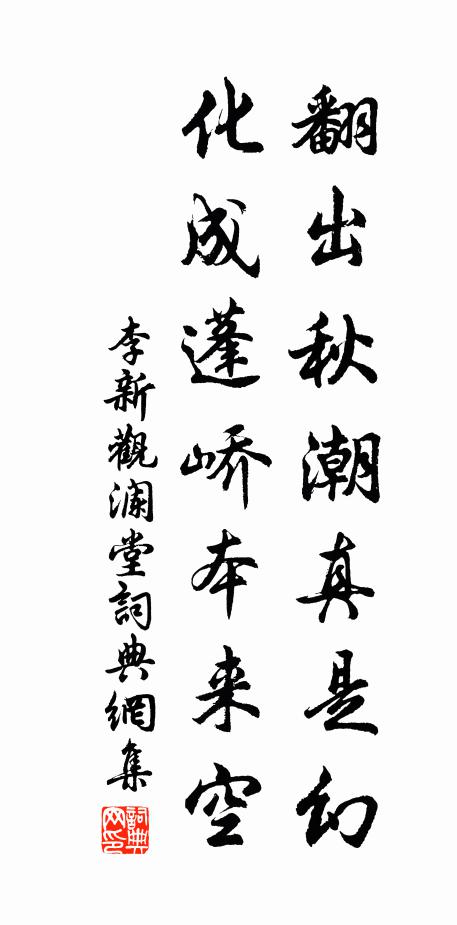 翻出秋潮真是幻
化成蓬峤本来空
李新觀瀾堂詞典網集
詞典网印